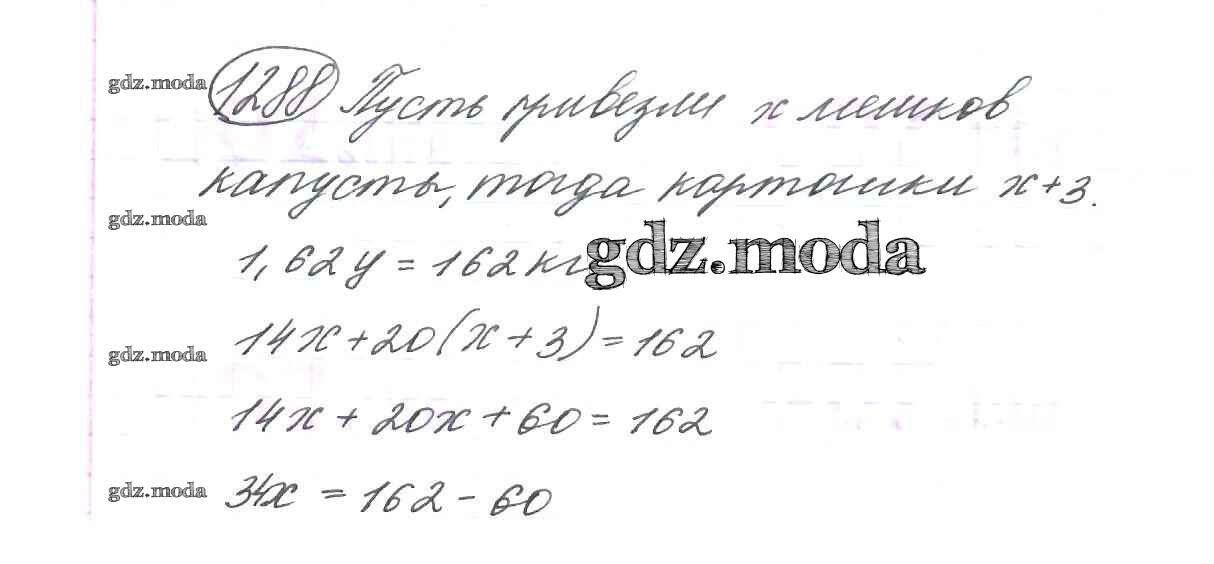 gdz.moda
1288 Пусть привезли x мешков
капусты, тогда картошки x+3.
gdz.moda
1,62 ц = 162 кг
gdz.moda
14x + 20(x + 3) = 162
gdz.moda
14x + 20x + 60 = 162
gdz.moda
34x = 162 - 60